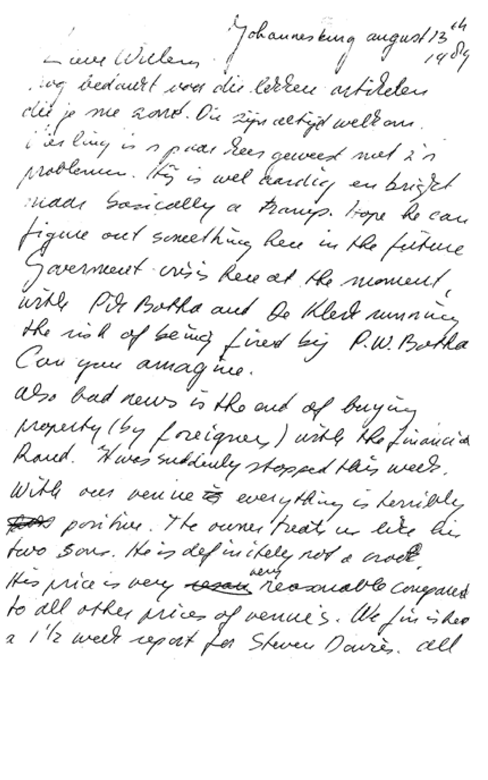 Johannesburg august 13th
1989
Lieve Willem
nog bedankt voor die lekkere artikelen
die je me zond. Die zijn altijd welkom.
is n paar keer geweest met z'n
problemen. Hij is wel aardig en bright
maar basically a tramp. Hope he can
figure out something here in the future
Goverment crisis here at the moment,
with Pik Botha and De Klerk running
the risk of being fired by P.W. Botha
Can you amagine.
also bad news is the end of buying
property (by foreigners) with the financial
Rand. It was suddenly stopped this week.
With our venue everything is terribly
positive. The owner treats us like his
two sons. He is definitely not a crook.
His price is very very reasonable compared
to all other prices of venue's. We finished
a 1½ week report for Steven Davies. all